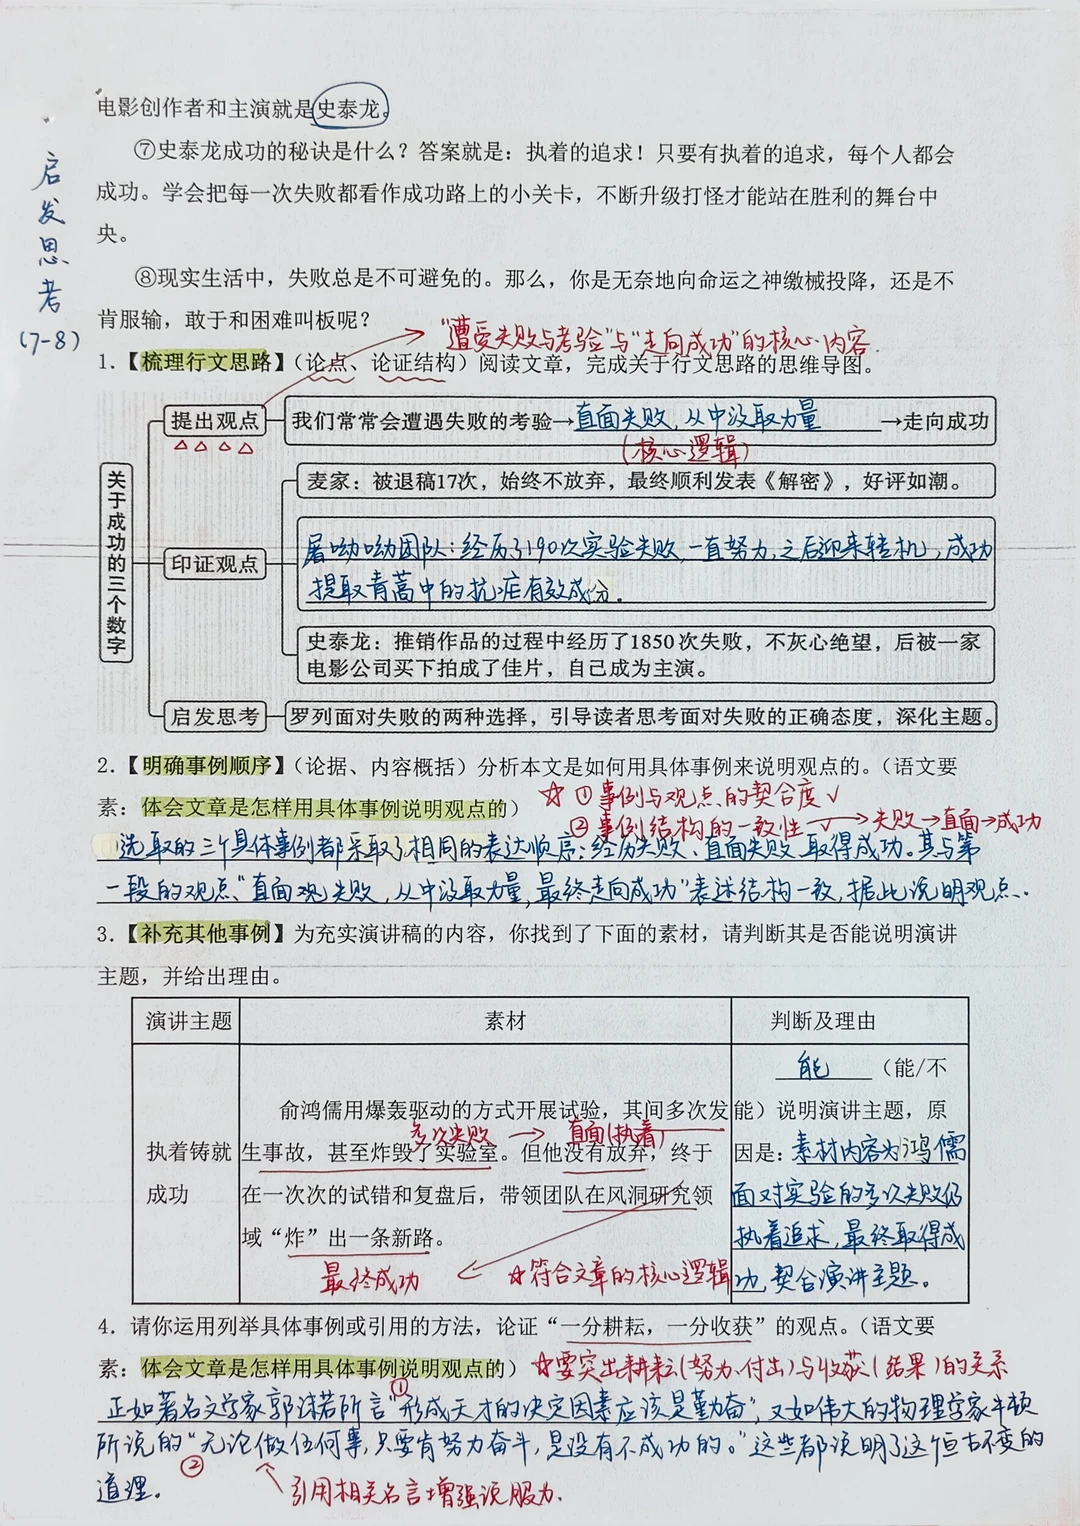 电影创作者和主演就是史泰龙。
⑦史泰龙成功的秘诀是什么？答案就是：执着的追求！只要有执着的追求，每个人都会
成功。学会把每一次失败都看作成功路上的小关卡，不断升级打怪才能站在胜利的舞台中
央。
启发思考
(7-8)
⑧现实生活中，失败总是不可避免的。那么，你是无奈地向命运之神缴械投降，还是不
肯服输，敢于和困难叫板呢？
"遭受失败与考验"与"走向成功"的核心内容.
1.【梳理行文思路】（论点、论证结构）阅读文章，完成关于行文思路的思维导图。
关于成功的三个数字
提出观点
我们常常会遭遇失败的考验→直面失败，从中汲取力量→走向成功
(核心逻辑)
印证观点
麦家：被退稿17次，始终不放弃，最终顺利发表《解密》，好评如潮。
屠呦呦团队：经历了190次实验失败，一直努力，之后迎来转机，成功
提取青蒿中的抗疟有效成分。
史泰龙：推销作品的过程中经历了1850次失败，不灰心绝望，后被一家
电影公司买下拍成了佳片，自己成为主演。
启发思考
罗列面对失败的两种选择，引导读者思考面对失败的正确态度，深化主题。
2.【明确事例顺序】（论据、内容概括）分析本文是如何用具体事例来说明观点的。（语文要
素：体会文章是怎样用具体事例说明观点的）
☆ ①事例与观点的契合度√
②事例结构的一致性√→失败→直面→成功
选取的三个具体事例都采取了相同的表达顺序：经历失败、直面失败、取得成功。其与第
一段的观点"直面观失败，从中汲取力量，最终走向成功"表述结构一致，据此说明观点.
3.【补充其他事例】为充实演讲稿的内容，你找到了下面的素材，请判断其是否能说明演讲
主题，并给出理由。
演讲主题
素材
判断及理由
执着铸就
成功
俞鸿儒用爆轰驱动的方式开展试验，其间多次发
多次失败→直面(执着)
生事故，甚至炸毁了实验室。但他没有放弃，终于
在一次次的试错和复盘后，带领团队在风洞研究领
域“炸”出一条新路。
最终成功
☆符合文章的核心逻辑
能（能/不
能）说明演讲主题，原
因是：素材内容为鸿儒
面对实验的多次失败仍
执着追求，最终取得成
功，契合演讲主题。
4. 请你运用列举具体事例或引用的方法，论证“一分耕耘，一分收获”的观点。（语文要
素：体会文章是怎样用具体事例说明观点的）
☆要突出耕耘(努力、付出)与收获(结果)的关系
①
正如著名文学家郭沫若所言"形成天才的决定因素应该是勤奋"，又如伟大的物理学家牛顿
所说的"无论做任何事，只要肯努力奋斗，是没有不成功的。"这些都说明了这个亘古不变的
②
道理。
引用相关名言增强说服力.